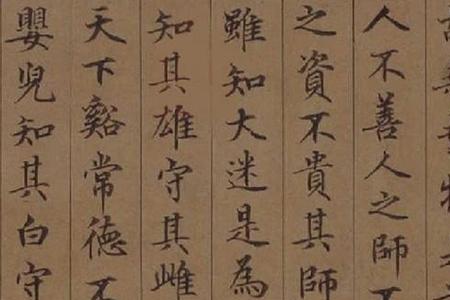 人不善人之師不
之資不貴其師
雖知大迷是為
知其雄守其雌
天下谿常徳不
嬰兒知其白守